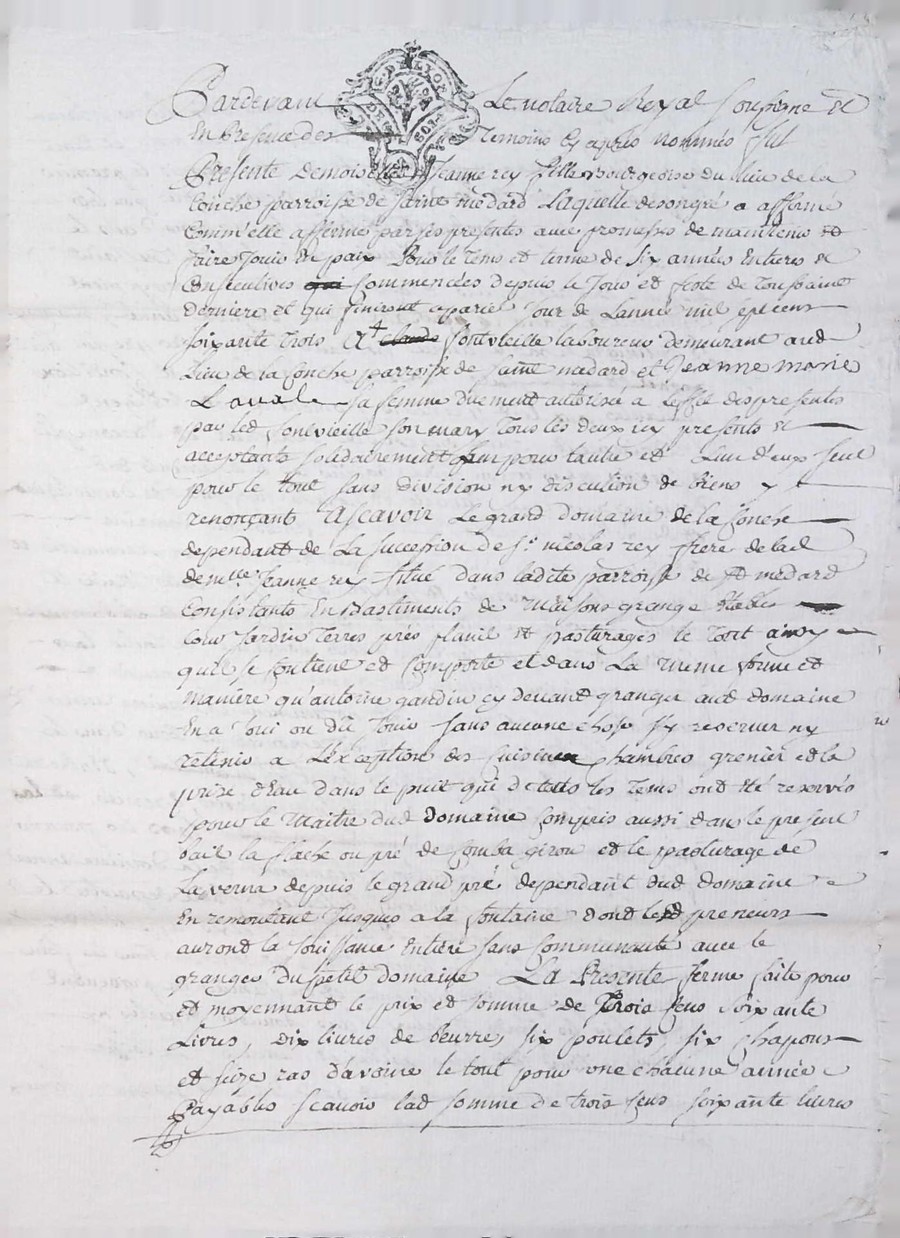 G. DE LYON
DEUX SOLS
Pardevant Le notaire Royal soussigne et
En Presence des Temoins Cy apres nommés fut
Presente Demoiselle Jeanne rey fille Bourgeoise du lieu de la
Conche parroisse de saint medard Laquelle de son gré a afferme
Comm'elle afferme par ses presentes avec promesses de maintenir et
faire Jouir En paix Pour le tems et terme de six années Entieres et
Consecutives qui Commencées depuis le Jour et feste de Toussaint
derniere et qui finiront a pareil Jour de L'année mil sept cens
soixante trois A claude fontvieille laboureur demeurant aud
Lieu de la Conche parroisse de saint medard et Jeanne marie
Laval sa femme duement autorisée a L'effet des presentes
par led fontvieille son mary Tous les deux icy presents et
acceptants solidairement l'un pour l'autre et L'un d'eux seul
pour le tout sans division ny discution de biens y
renonçant Ascavoir Le grand domaine de la Conche
dependant de La succession de sr nicolas rey frere de lad
demlle Jeanne rey situé dans ladite parroisse de st medard
Consistants En Bastiments de maisons grange Etables
Cour Jardin Terres prés planil et pasturages le Tout ainsy
quil se Contient et Comporte et dans La meme forme et
maniere qu'antoine gandin cy devant granger aud domaine
En a Joui ou dû Jouir sans aucune chose s'y reserver ny
retenir a L'exception des Cuisine Chambres grenier et la
prise d'Eau dans le puit qui de tous les Tems ont été reservés
pour le Maitre dud Domaine Compris aussi dans le present
bail la flache ou pré de Comba giron et le pasturage de
La verna depuis le grand pré dependant dud domaine
En remontant Jusques a la fontaine dont lesd preneurs
auront la Jouissance Entiere sans Communauté avec le
granger du petit domaine La Presente ferme faite pour
et moyennant le prix et somme de Trois Cens soixante
Livres, Dix livres de beurre, six poulets, six Chapons
et seize ras d'avoine le tout pour une chacune année
Payables scavoir lad somme de trois Cens soixante livres